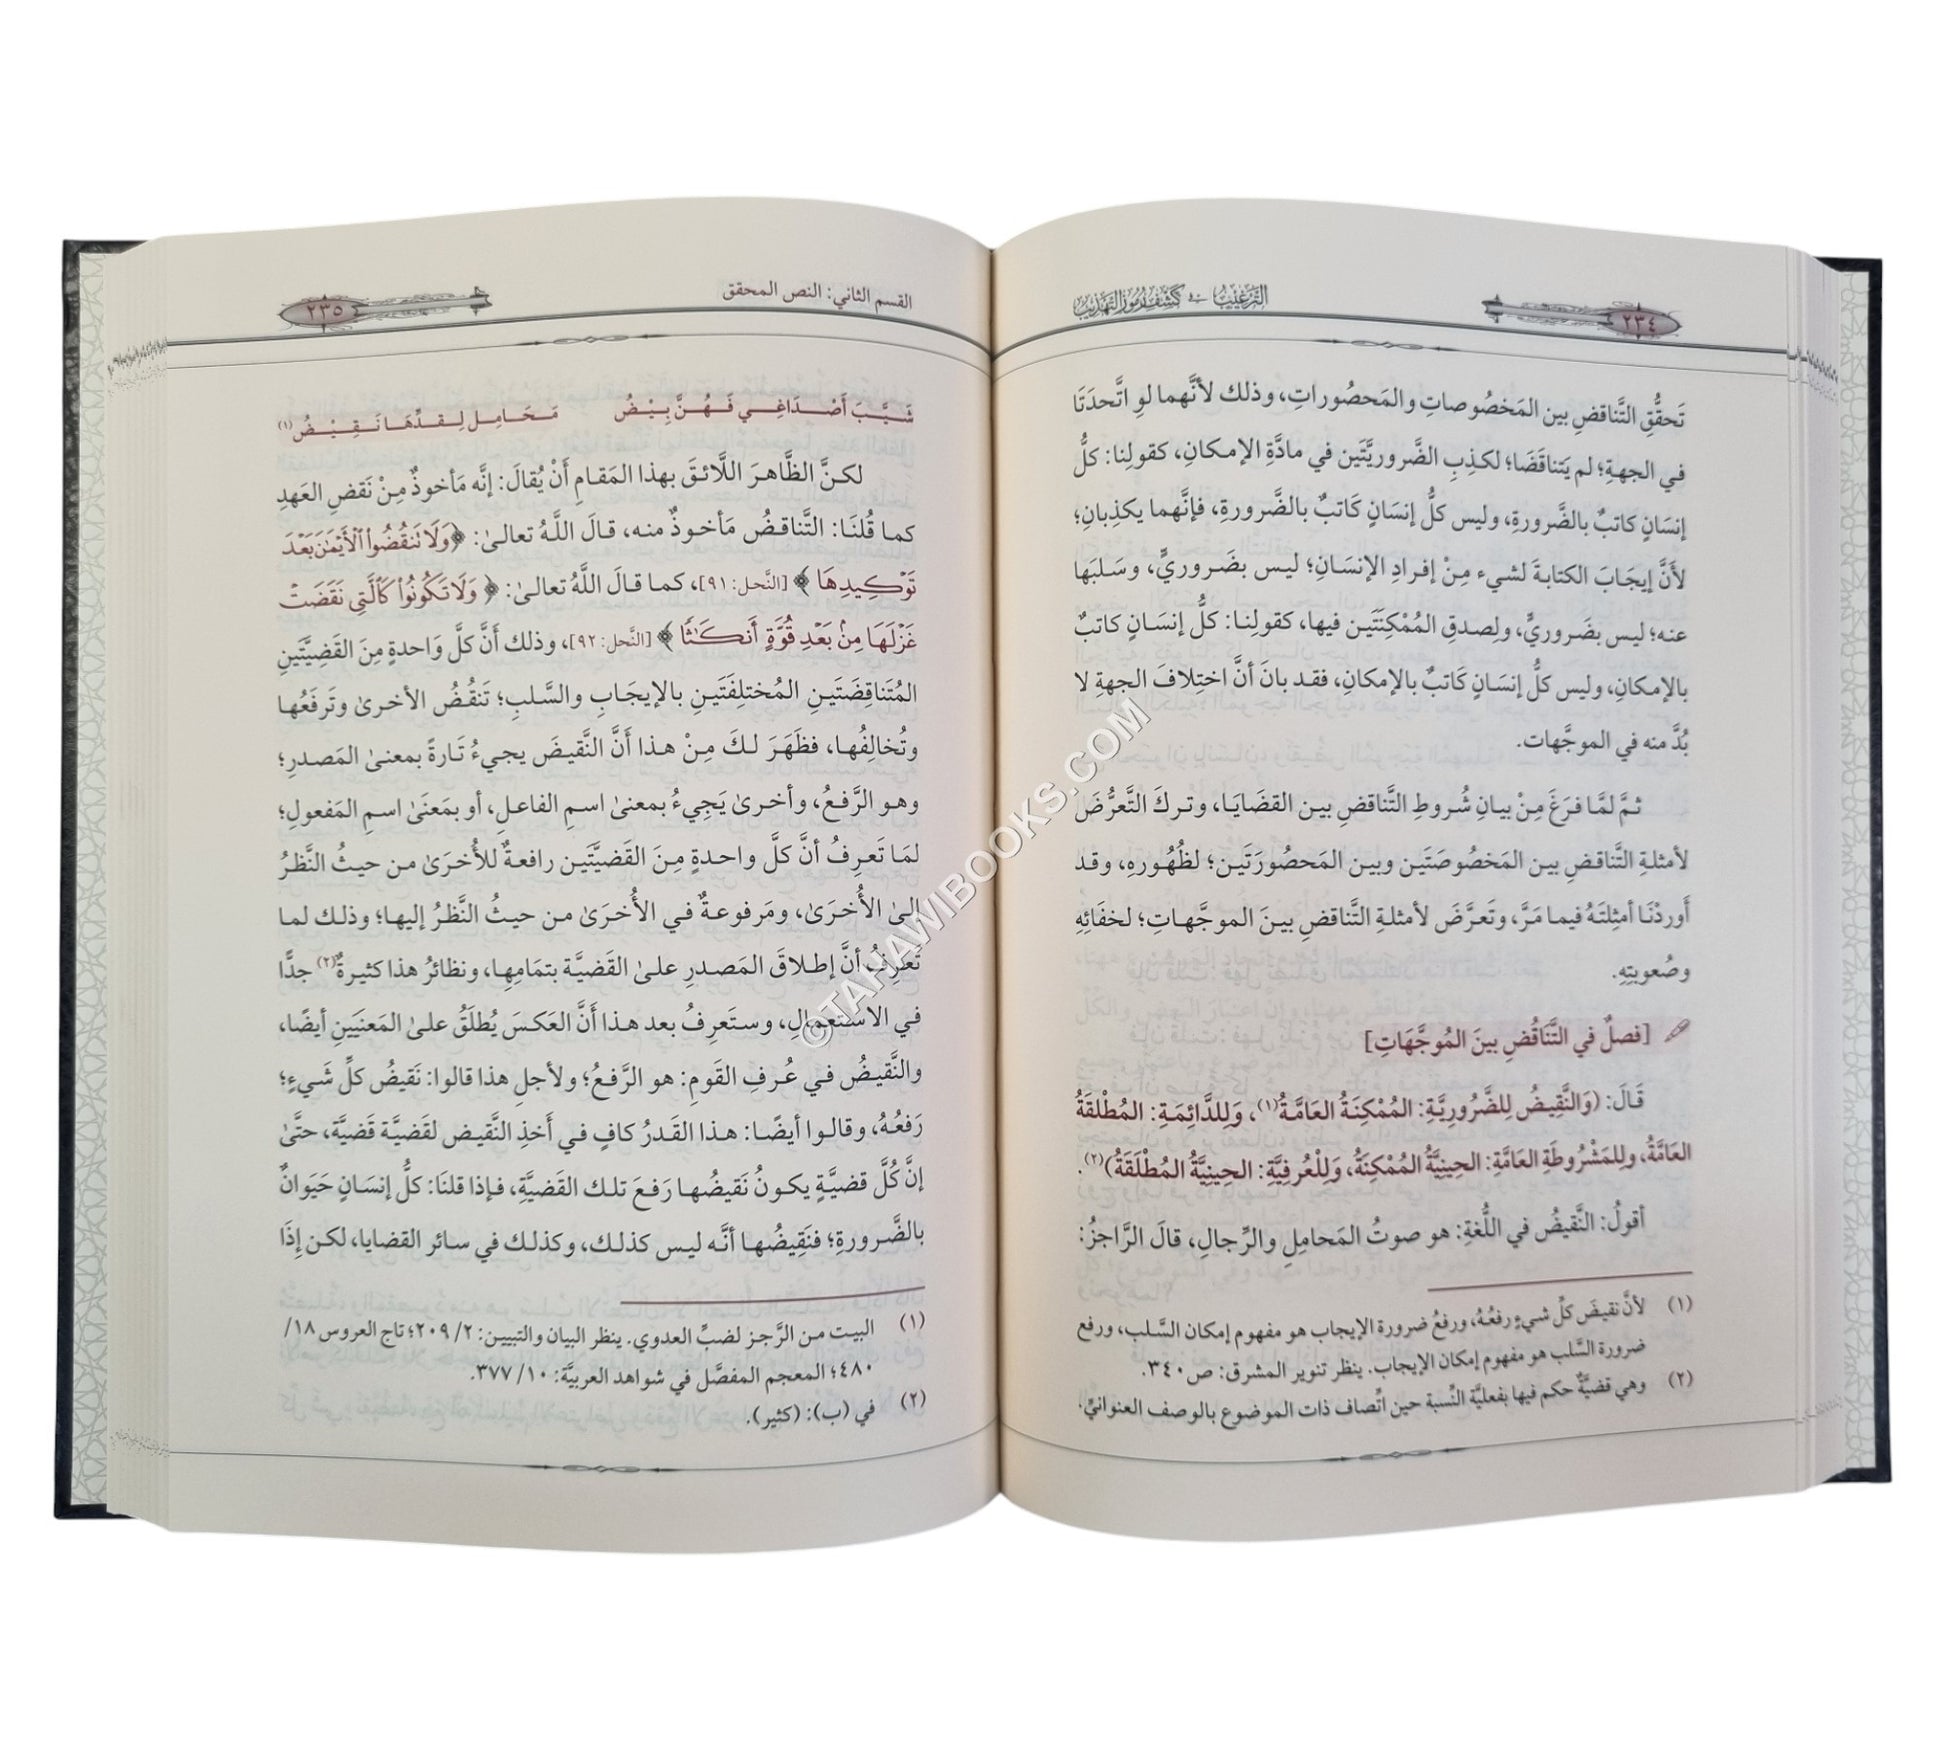 ٢٣٤
الترغيب في كشف رموز التهذيب
تَحقُّقِ التَّناقضِ بين المَخصُوصاتِ والمَحصُوراتِ، وذلك لأنَّهما لو اتَّحدَتَا
في الجهةِ؛ لم يَتناقَضَا؛ لكذِبِ الضَّروريَّتَين في مادَّةِ الإمكانِ، كقولِنا: كلُّ
إنسَانٍ كاتبٌ بالضَّرورةِ، وليس كلُّ إنسَانٍ كَاتبٌ بالضَّرورةِ، فإنَّهما يكذِبانِ؛
لأَنَّ إيجَابَ الكتابةَ لشيء مِنْ إفرادِ الإنسَانِ؛ ليس بضَروريٍّ، وسَلبَها
عنه؛ ليس بضَروريٍّ، ولِصدقِ المُمْكِنَتَين فيها، كقولِنا: كلُّ إنسَانٍ كاتبٌ
بالإمكانِ، وليس كلُّ إنسَانٍ كَاتبٌ بالإمكانِ، فقد بانَ أنَّ اختِلافَ الجهةِ لا
بُدَّ منه في الموجَّهات.
ثمَّ لمَّا فرَغَ مِنْ بيانِ شُروطِ التَّناقضِ بين القضَايَا، وتركَ التَّعرُّضَ
لأمثلةِ التَّناقضِ بين المَخصُوصَتَين وبين المَحصُورَتَين؛ لظُهُورِهِ، وقد
أَوردْنَا أمثِلتَهُ فيما مَرَّ، وتَعرَّضَ لأمثلةِ التَّناقضِ بينَ الموجَّهاتِ؛ لخفَائِهِ
وصُعوبتِهِ.
[فصلٌ في التَّنَاقُضِ بينَ المُوجَّهَاتِ]
قَالَ: (وَالنَّقِيضُ لِلضَّرُورِيَّةِ: المُمْكِنَةُ العَامَّةُ(١)، وَلِلدَّائِمَةِ: المُطْلَقَةُ
العَامَّةُ، ولِلمَشْرُوطَةِ العَامَّةِ: الحِينِيَّةُ المُمْكِنَةُ، وَلِلْعُرفِيَّةِ: الحِينِيَّةُ المُطْلَقَةُ)(٢).
أقولُ: النَّقيضُ في اللُّغةِ: هو صوتُ المَحامِلِ والرِّجالِ، قالَ الرَّاجزُ:
(١) لأنَّ نقيضَ كلِّ شيءٍ رفعُهُ، ورفعُ ضرورة الإيجاب هو مفهوم إمكان السَّلب، ورفع
ضرورة السَّلب هو مفهوم إمكان الإيجاب. ينظر تنوير المشرق: ص ٣٤٠.
(٢) وهي قضيَّةٌ حكم فيها بفعليَّة النِّسبة حين اتِّصاف ذات الموضوع بالوصف العنوانيِّ.
القسم الثاني: النص المحقق
٢٣٥
شَيَّبَ أَصْدَاغِي فَهُنَّ بِيْضُ مَحَامِل لِقدِّهَا نَقِيْضُ(١)
لكنَّ الظَّاهرَ اللَّائقَ بهذا المَقامِ أَنْ يُقالَ: إنَّه مَأخوذٌ مِنْ نَقضِ العَهدِ
كما قُلنَا: التَّناقضُ مَأخوذٌ منه، قالَ اللَّهُ تعالىٰ: ﴿وَلَا تَنقُضُوا۟ ٱلْأَيْمَٰنَ بَعْدَ
تَوْكِيدِهَا﴾ [النَّحل: ٩١]، كما قالَ اللَّهُ تعالىٰ: ﴿وَلَا تَكُونُوا۟ كَٱلَّتِى نَقَضَتْ
غَزْلَهَا مِنۢ بَعْدِ قُوَّةٍ أَنكَٰثًا﴾ [النَّحل: ٩٢]، وذلك أنَّ كلَّ وَاحدةٍ مِنَ القَضِيَّتَينِ
المُتَناقِضَتَينِ المُختلِفَتَينِ بالإيجَابِ والسَّلبِ؛ تَنقُضُ الأخرىٰ وتَرفَعُها
وتُخالِفُها، فظَهَرَ لكَ مِنْ هذا أَنَّ النَّقيضَ يجيءُ تَارةً بمعنىٰ المَصدرِ؛
وهو الرَّفعُ، وأخرىٰ يَجِيءُ بمعنىٰ اسمِ الفاعلِ، أو بمَعنَىٰ اسمِ المَفعولِ؛
لمَا تَعرِفُ أنَّ كلَّ واحدةٍ مِنَ القَضيَّتَين رافعةٌ للأُخرَىٰ من حيثُ النَّظرُ
إلىٰ الأُخرَىٰ، ومَرفوعةٌ في الأُخرَىٰ من حيثُ النَّظرُ إليها؛ وذلك لما
تَعرِفُ أنَّ إطلاقَ المَصدرِ علىٰ القَضيَّة بتمَامِها، ونظائرُ هذا كثيرةٌ(٢) جدًّا
في الاستعمالِ، وستَعرِفُ بعد هذا أَنَّ العَكسَ يُطلَقُ علىٰ المَعنَيَينِ أيضًا،
والنَّقيضُ في عُرفِ القَومِ: هو الرَّفعُ؛ ولأجلِ هذا قالوا: نَقيضُ كلِّ شَيءٍ؛
رَفعُهُ، وقالوا أيضًا: هذا القَدرُ كافٍ في أَخذِ النَّقيضِ لقَضيَّة قَضيَّة، حتَّىٰ
إنَّ كُلَّ قضيَّةٍ يكونُ نَقيضُها رَفعَ تلك القَضيَّةِ، فإذا قلنَا: كلُّ إنسَانٍ حَيَوَانٌ
بالضَّرورةِ؛ فنَقِيضُها أنَّه ليس كذلك، وكذلك في سائر القضايا، لكن إِذَا
(١) البيت من الرَّجز لضبِّ العدوي. ينظر البيان والتبيين: ٢/ ٢٠٩؛ تاج العروس ١٨/
٤٨٠؛ المعجم المفصَّل في شواهد العربيَّة: ١٠/ ٣٧٧.
(٢) في (ب): (كثير).
©TAHAWIBOOKS.COM